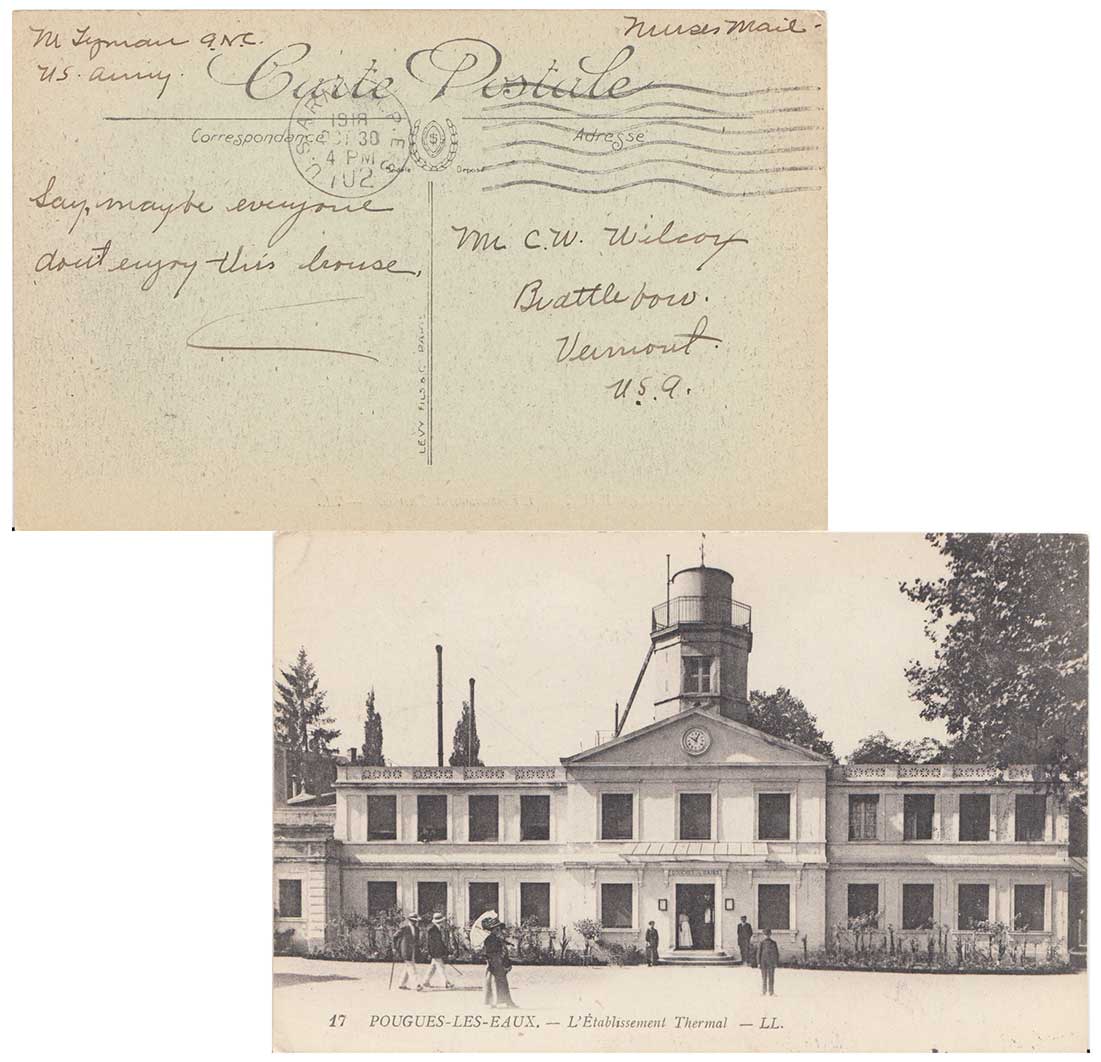 M Lyman A.N.C.
U.S. Army.
Nurses Mail -
Carte Postale
Correspondance
Adresse
U.S. ARMY M.P.E.S.
1918
OCT 30
4 PM
702
Déposé
Say, maybe everyone
dont enjoy this house.
Mr C.W. Wilcox
Brattleboro.
Vermont.
U.S.A.
LEVY FILS & C. PARIS
17 POUGUES-LES-EAUX. — L'Établissement Thermal — LL.